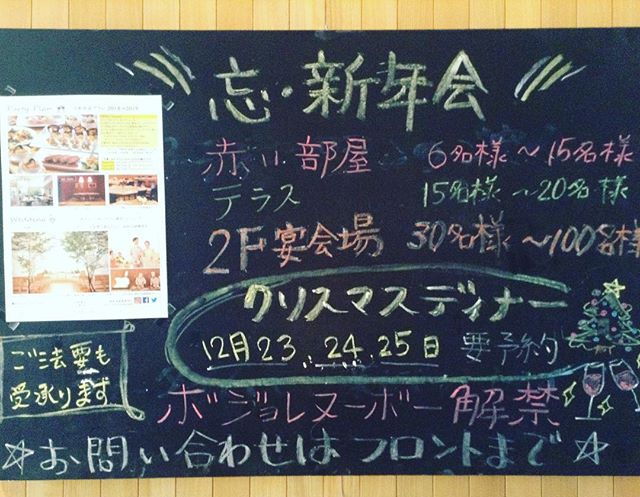 忘・新年会
赤い部屋 6名様〜15名様
テラス 15名様〜20名様
2F宴会場 30名様〜100名様
クリスマスディナー
12月23.24.25日 要予約
ご法要も
受承ります
ボジョレヌーボー解禁
☆お問い合わせはフロントまで☆
Party Plan
Wedding